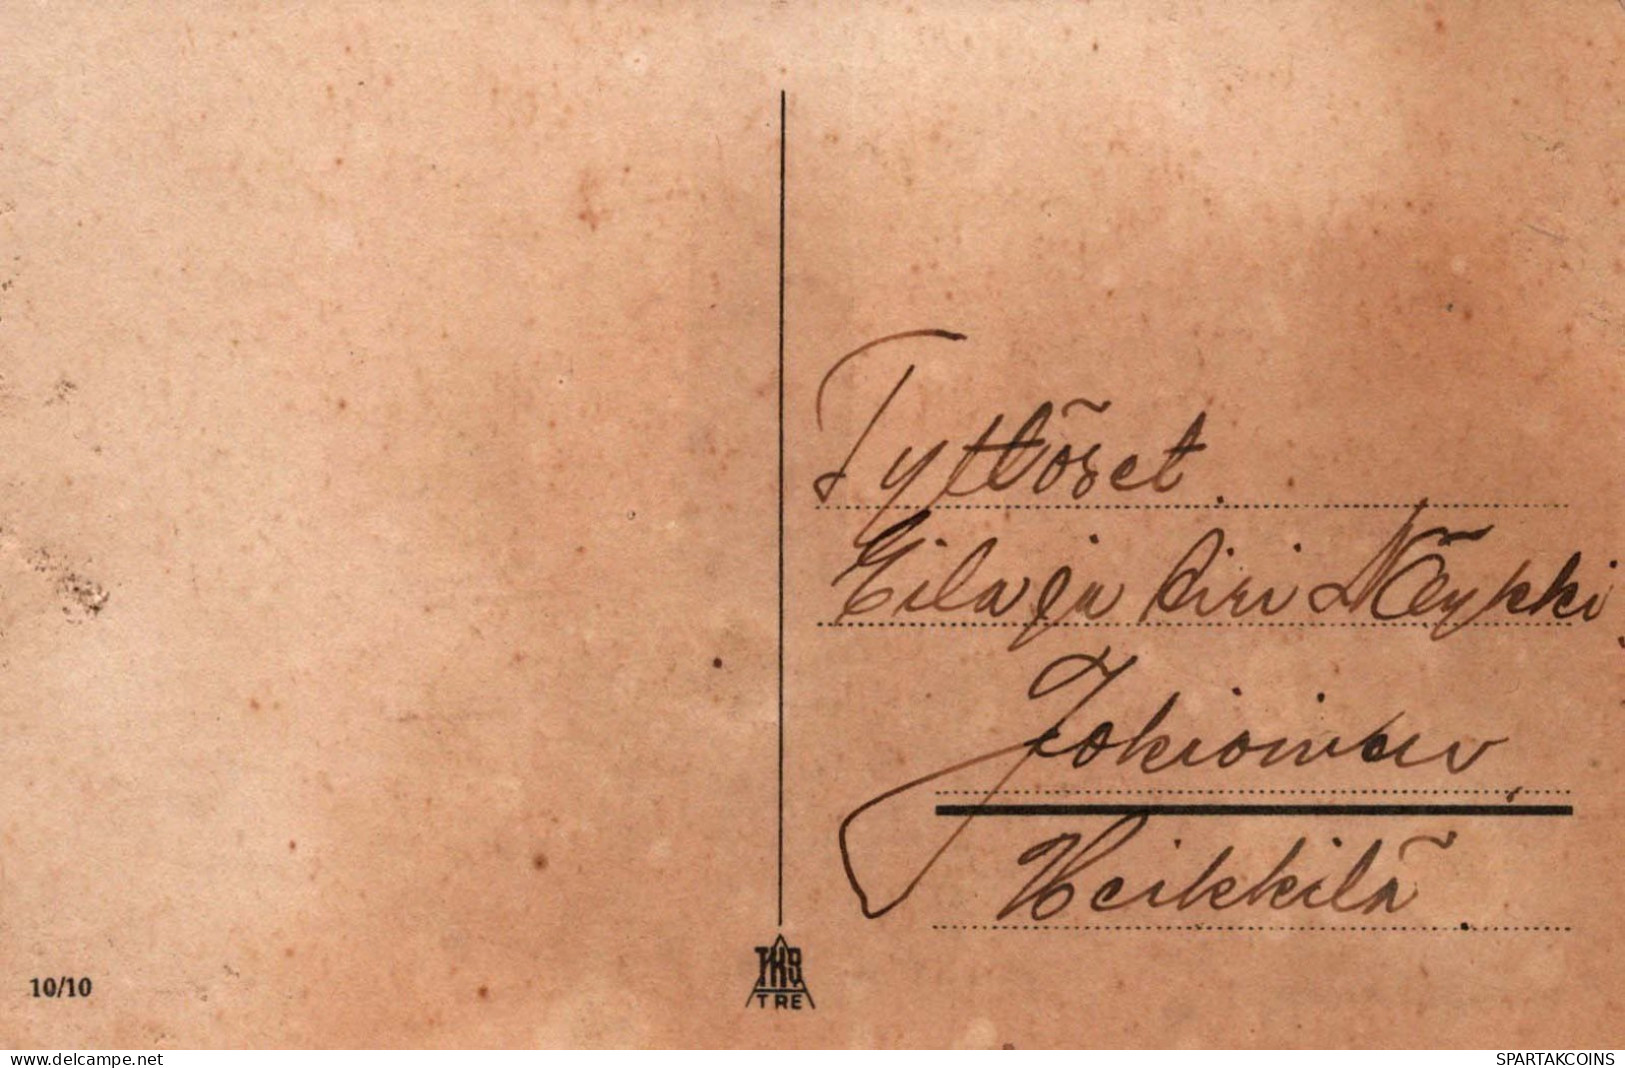 Tyttöset
Eila ja Siri Näykki
Jokioinen
Heikkilä
10/10
TKS
TRE
www.delcampe.net
SPARTAKCOINS